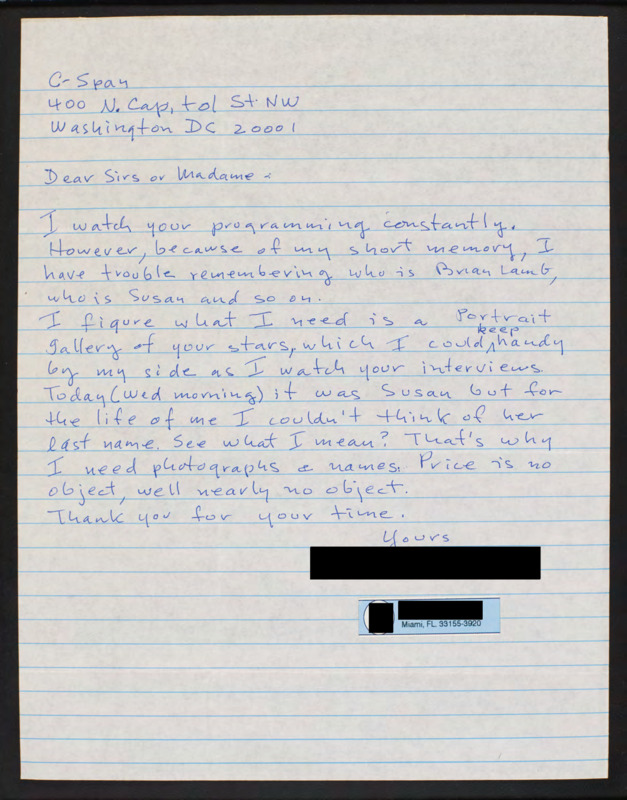 C-Span
400 N. Capitol St. NW
Washington DC 20001
Dear Sirs or Madame -
I watch your programming constantly.
However, because of my short memory, I
have trouble remembering who is Brian Lamb,
who is Susan and so on.
I figure what I need is a Portrait
gallery of your stars, which I could keep handy
by my side as I watch your interviews.
Today (Wed morning) it was Susan but for
the life of me I couldn't think of her
last name. See what I mean? That's why
I need photographs & names. Price is no
object, well nearly no object.
Thank you for your time.
Yours
Miami, FL, 33155-3920